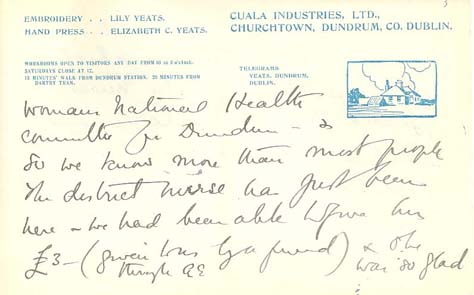 EMBROIDERY . . LILY YEATS.
HAND PRESS . . ELIZABETH C. YEATS.
CUALA INDUSTRIES, LTD.,
CHURCHTOWN, DUNDRUM, CO. DUBLIN.
WORKROOMS OPEN TO VISITORS ANY DAY FROM 10 to 5 o'clock.
SATURDAYS CLOSE AT 12.
12 MINUTES' WALK FROM DUNDRUM STATION. 20 MINUTES FROM
DARTRY TRAM.
TELEGRAMS
YEATS, DUNDRUM,
DUBLIN.
Womans National Health
Committee for Dundrum - &
so we know more than most people
The district nurse has just been
here - we had been able to give her
£3 - (given to us by a friend) & she
through AE was so glad